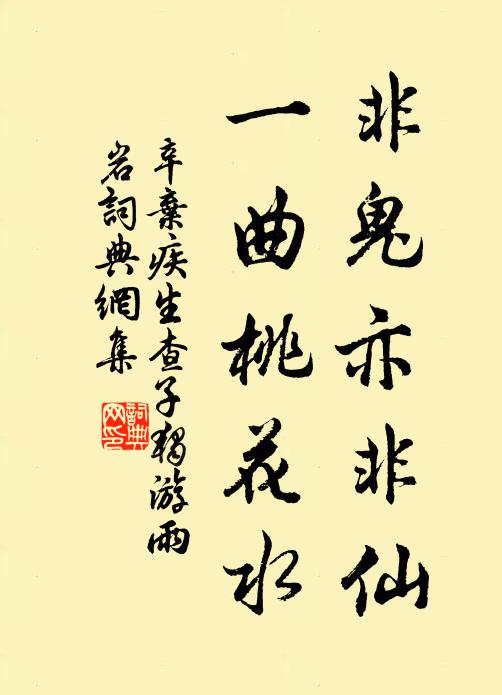 非鬼亦非仙
一曲桃花水
辛棄疾生查子獨游雨
岩詞典網集
詞典
网印